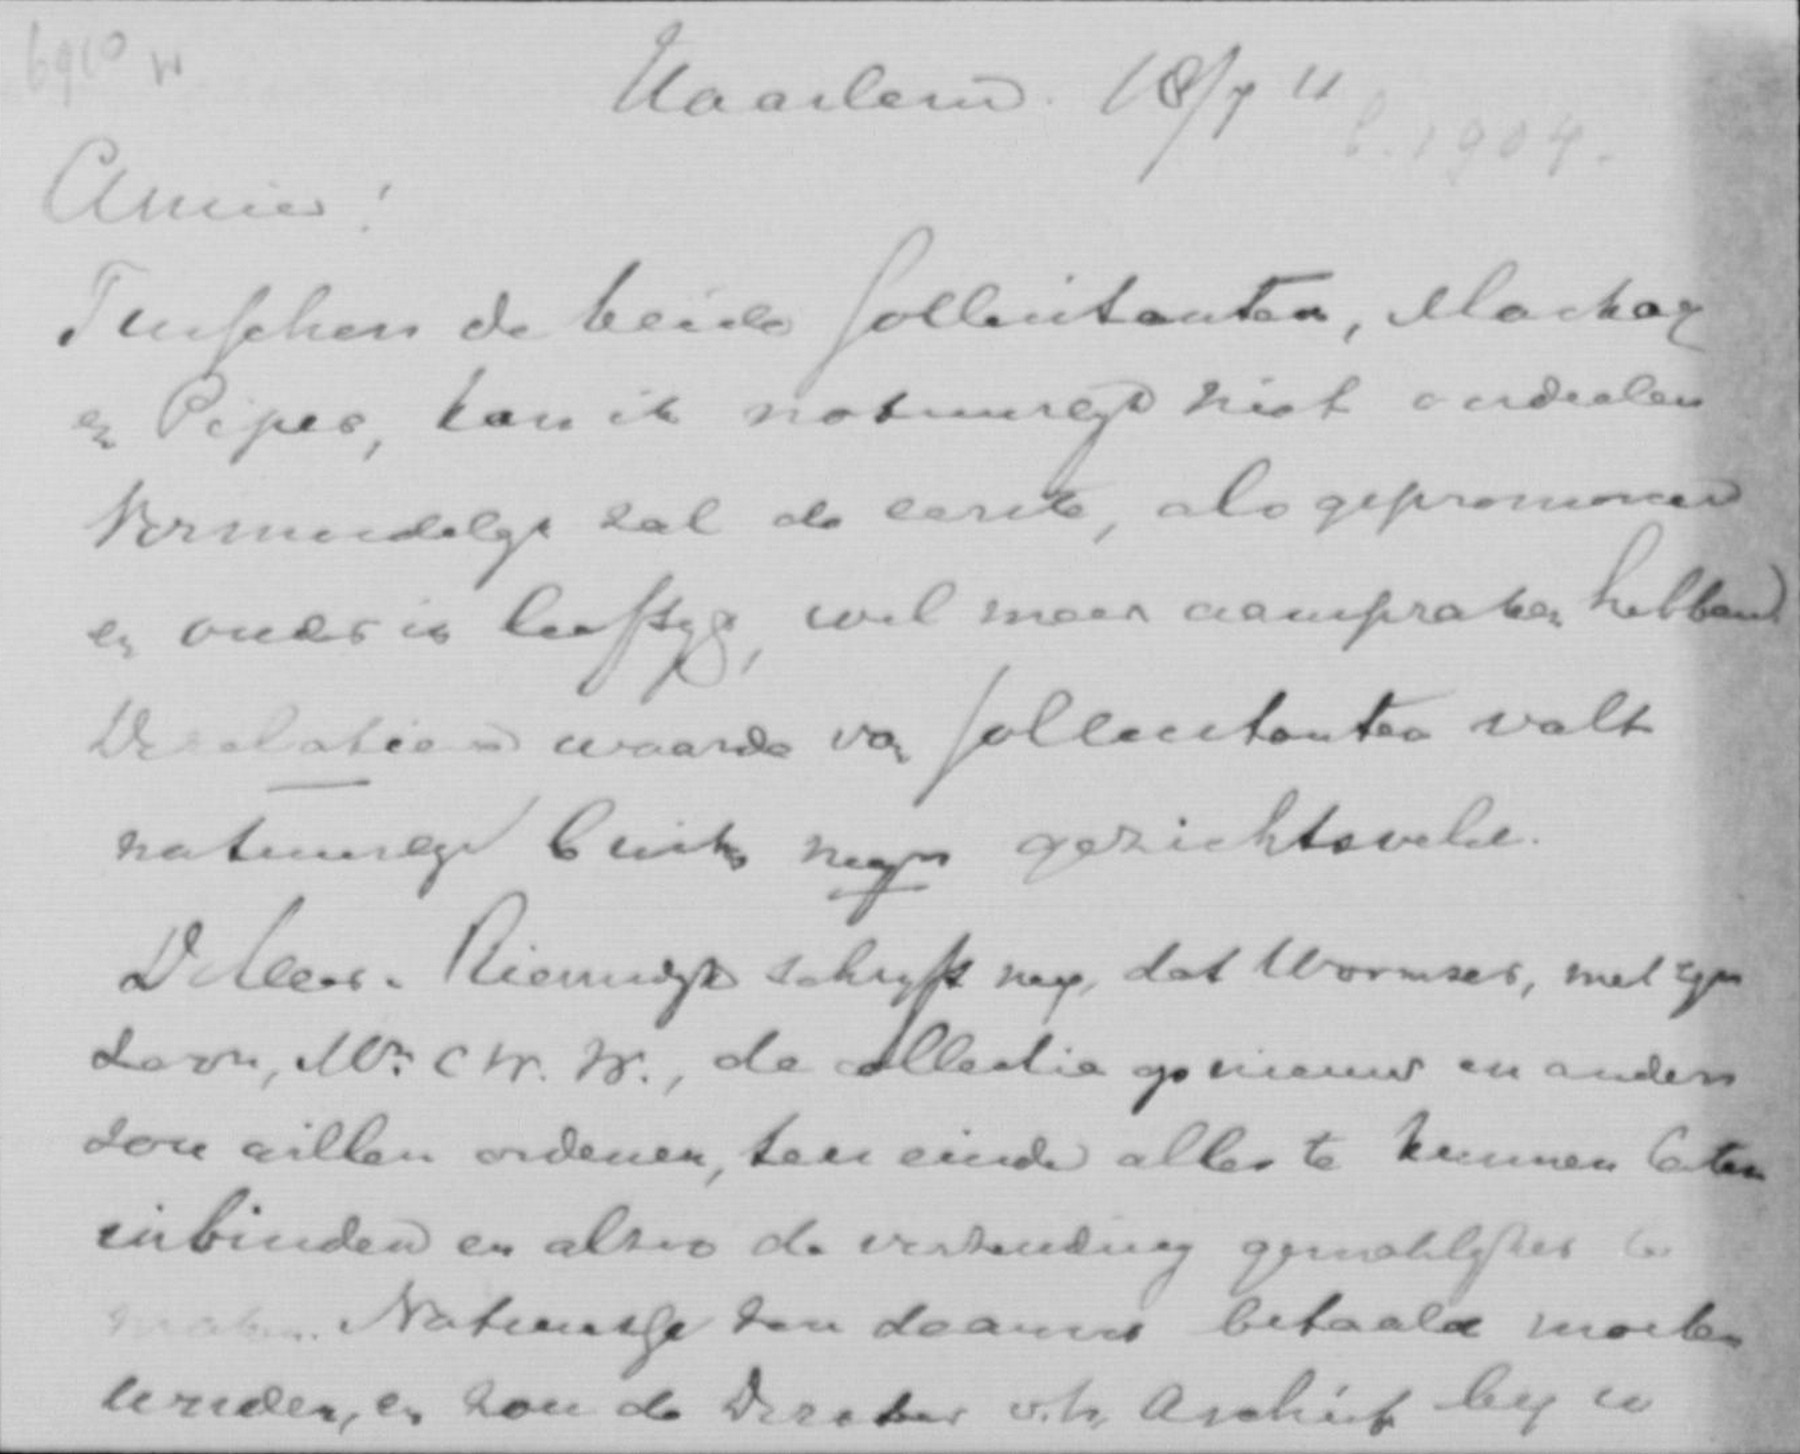 6910 W
Haarlem. 18/7 11
b. 1904.
Amice!
Tusschen de beide sollicitanten, Mackay
en Pijper, kan ik natuurlijk niet oordeelen
Vermoedelijk zal de eerste, als gepromoveerd
en ouder in leeftijd, wel meer aanspraken hebben.
De relatieve waarde van sollicitanten valt
natuurlijk buiten mijn gezichtsveld.
De Heer Riemsdijk schrijft mij, dat Wormser, met zijn
zoon, Mr. C W. W., de collectie opnieuw en anders
zou willen ordenen, ten einde alles te kunnen laten
inbinden en alzoo de verzending gemakkelijker te
maken. Natuurlijk zou daarvoor betaald moeten
worden, en zou de Directeur v. h. Archief bij u